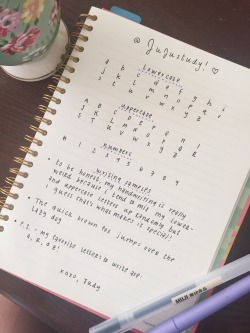 @ Jujustudy! ♡
Lowercase
a b c d e f g h i
j k l m n o p q r
s t u v w x y z
Uppercase
A B C D E F G H I
J K L M N O P Q R
S T U V W X Y Z
Numbers
0 1 2 3 4 5 6 7 8 9
writing samples
• to be honest, my handwriting is really
weird because i tend to mix my lower-
and uppercase letters up randomly but
i guess that's what makes it special!
• The quick brown fox jumps over the
lazy dog
my favorite letters to write are:
xoxo, Judy
MUJI